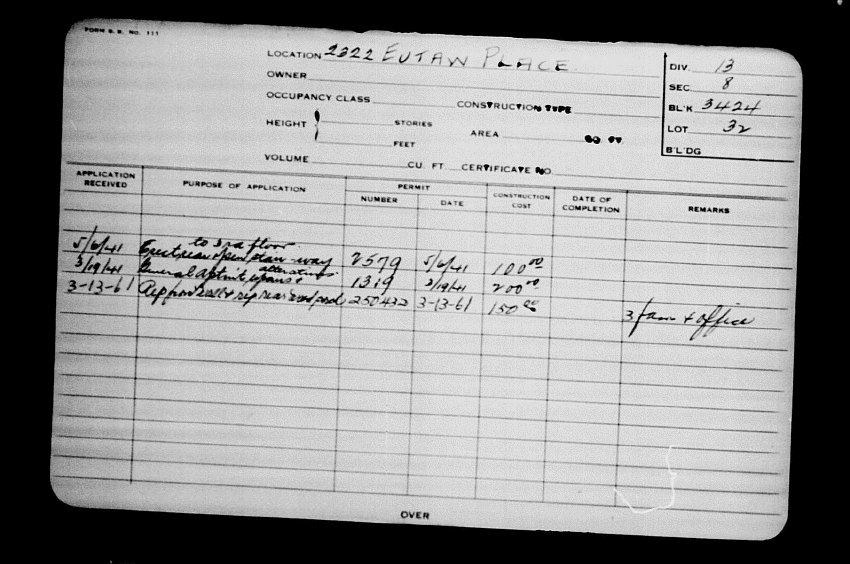 FORM B.B. NO. 111
LOCATION 2322 EUTAW PLACE
OWNER
OCCUPANCY CLASS CONSTRUCTION TYPE
HEIGHT STORIES AREA SQ. FT.
FEET
VOLUME CU. FT. CERTIFICATE NO.
DIV. 13
SEC 8
BL'K 3424
LOT 32
B'L'DG
APPLICATION RECEIVED PURPOSE OF APPLICATION PERMIT NUMBER DATE CONSTRUCTION COST DATE OF COMPLETION REMARKS
to 3rd floor
5/6/41 Erect rear open stair-way 2579 5/6/41 100.00
alterations
3/19/41 General 1319 3/19/41 200.00
3-13-61 Rep 250432 3-13-61 150.00
3 fam + office
OVER